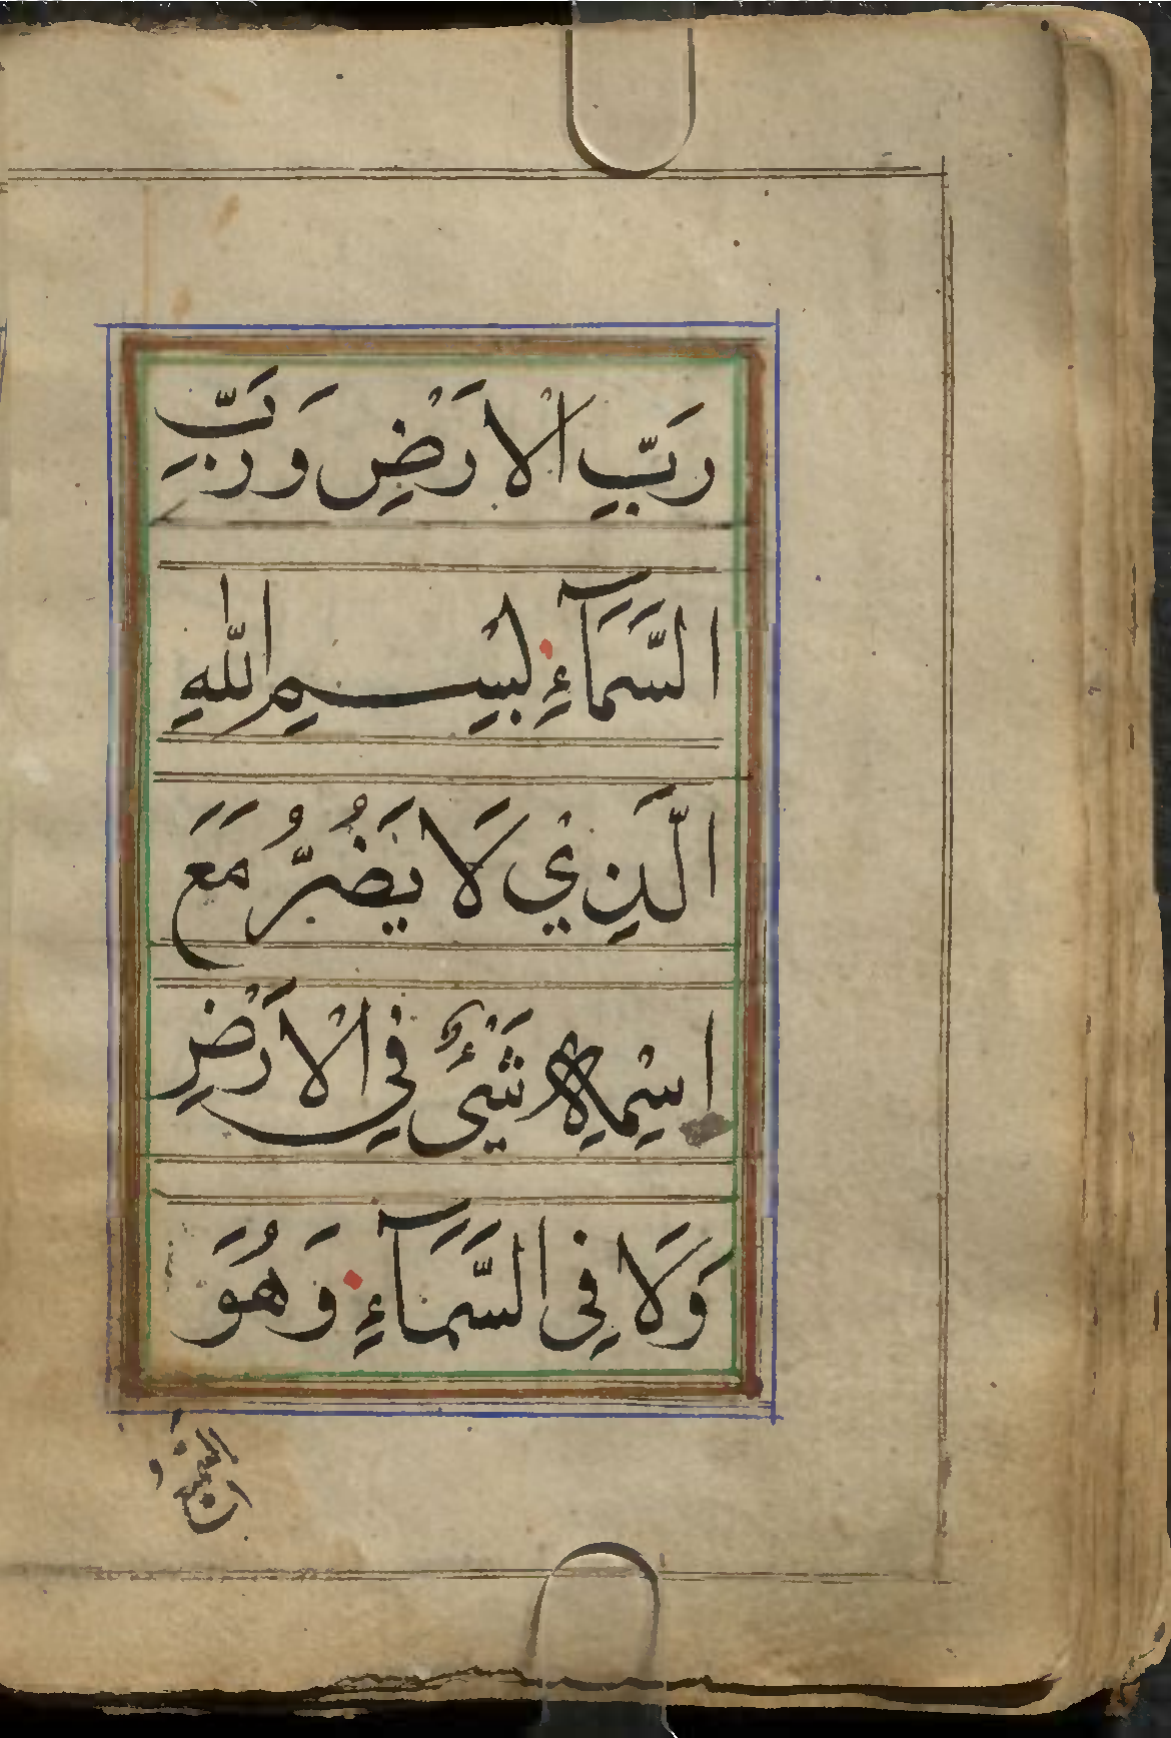 رَبِّ الْاَرْضِ وَرَبِّ
السَّمَآءِ بِسْمِ اللّٰهِ
الَّذِيْ لَا يَضُرُّ مَعَ
اسْمِهٖ شَيْءٌ فِي الْاَرْضِ
وَلَا فِى السَّمَآءِ وَهُوَ
السميع